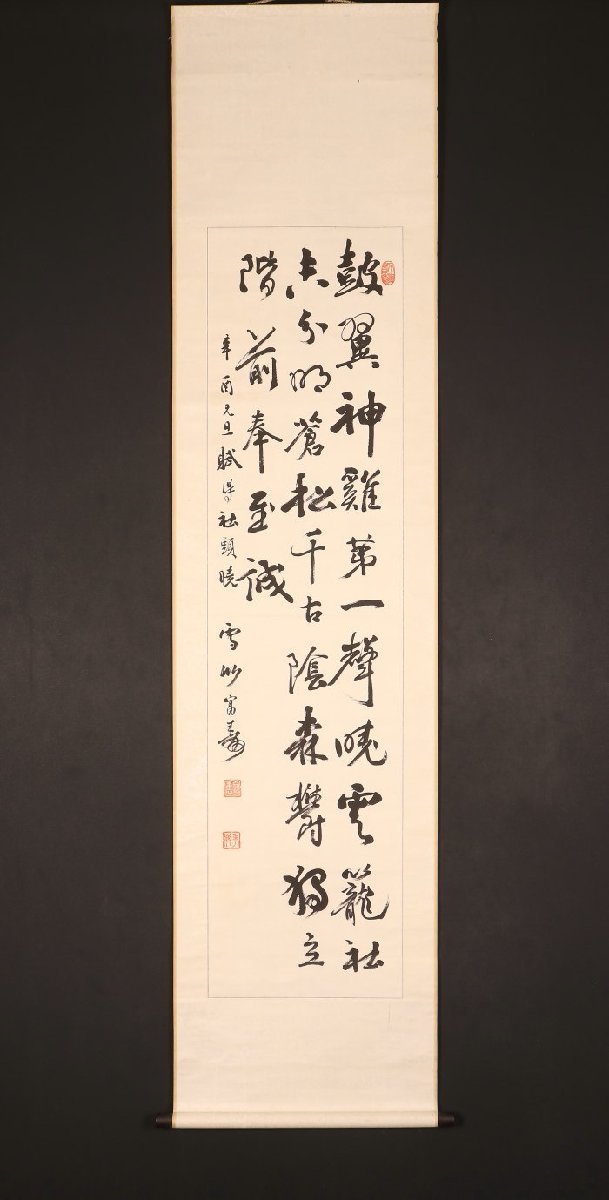 鼓翼神雞第一聲曉雲籠社
未分明蒼松千古陰森鬱獨立
階前奉至誠
辛酉元旦賦得社頭曉　雪竹